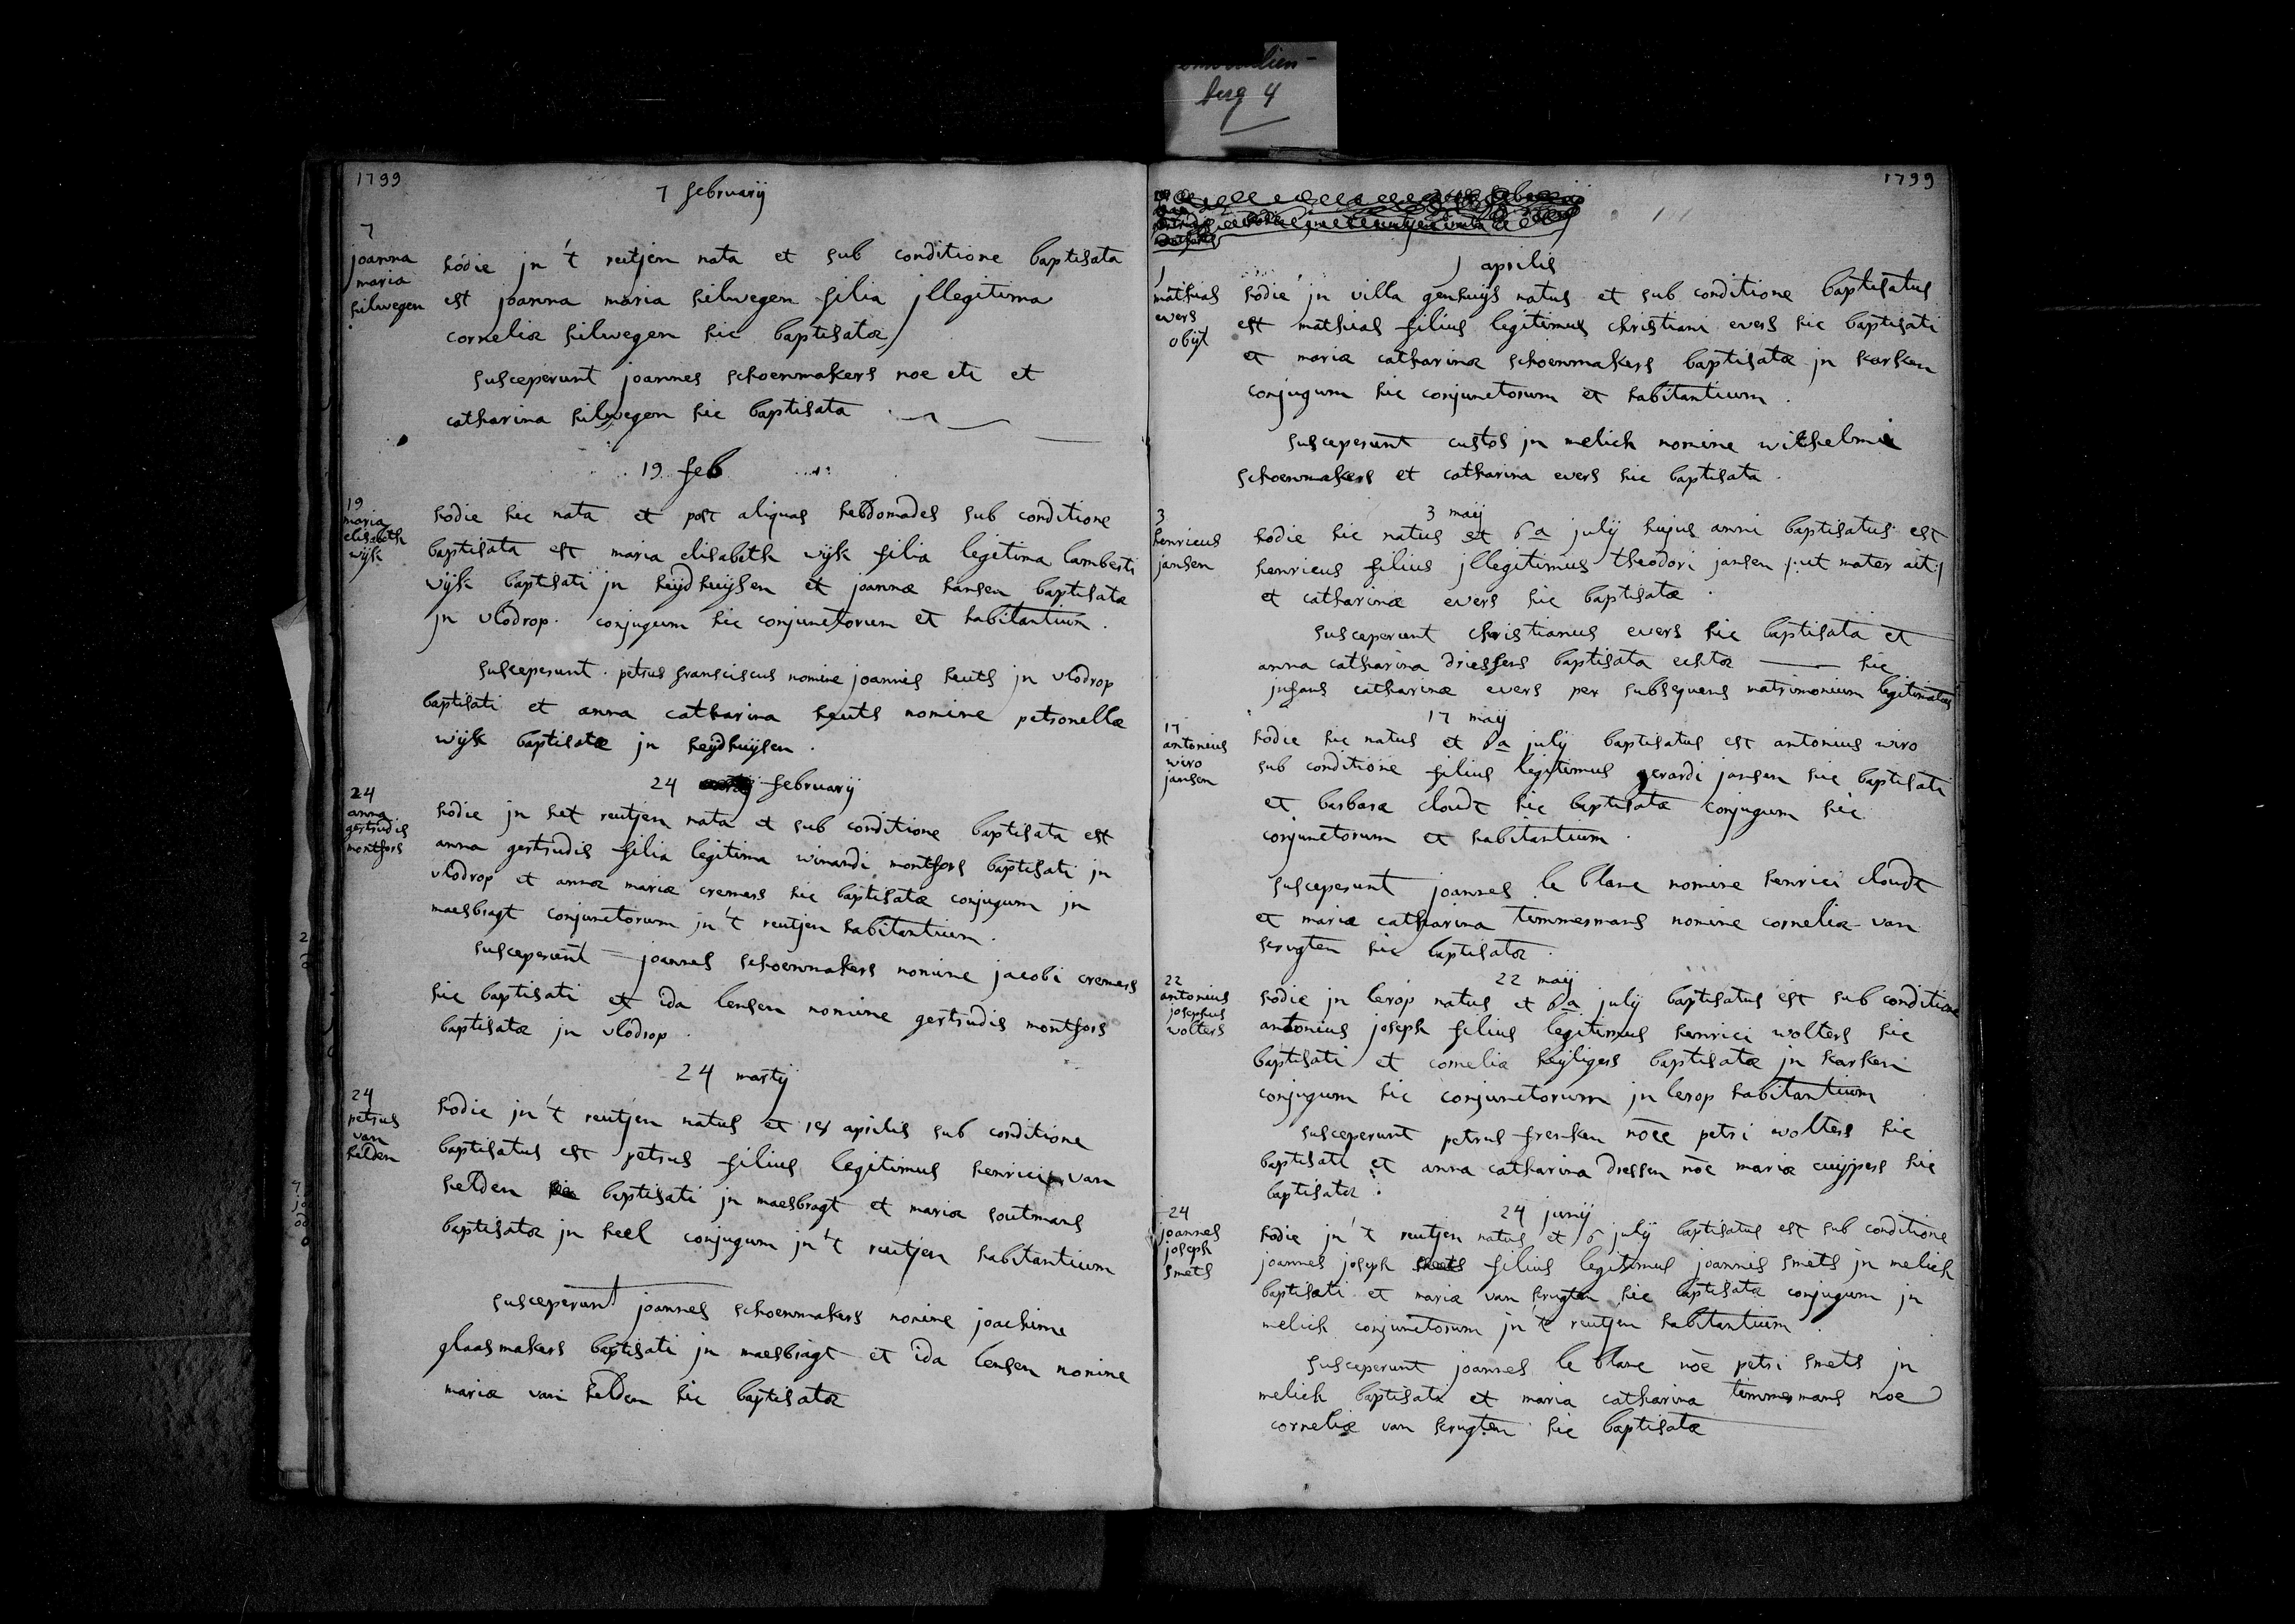 berg 4
1799
7 februarij
7
joanna
maria
hilwegen
hodie jn 't reutjen nata et sub conditione baptisata
est joanna maria hilwegen filia jllegitima
corneliæ hilwegen hic baptisatæ
susceperunt joannes schoenmakers noe eti et
catharina hilwegen hic baptisata
19 feb
19
maria
elisabeth
wijk
hodie hic nata et post aliquas hebdomades sub conditione
baptisata est maria elisabeth wijk filia legitima lamberti
wijk baptisati jn heijdhuijsen et joannæ hansen baptisatæ
jn vlodrop. conjugum hic conjunctorum et habitantium.
susceperunt. petrus fransciscus nomine joannis heuts jn vlodrop
baptisati et anna catharina heuts nomine petronellæ
wijk baptisatæ jn heijdhuijsen.
24 februarij
24
anna
gertrudis
montfors
hodie jn het reutjen nata et sub conditione baptisata est
anna gertrudis filia legitima winandi montfors baptisati jn
vlodrop et annæ mariæ cremers hic baptisatæ conjugum jn
maesbragt conjunctorum jn 't reutjen habitantium.
susceperunt joannes schoenmakers nomine jacobi cremers
hic baptisati et ida lensen nomine gertrudis montfors
baptisatæ jn vlodrop.
24 martij
24
petrus
van
helden
hodie jn 't reutjen natus et 1a aprilis sub conditione
baptisatus est petrus filius legitimus henrici van
helden baptisati jn maesbragt et mariæ soutmans
baptisatæ jn heel conjugum jn 't reutjen habitantium
susceperunt joannes schoenmakers nomine joachime
glaasmakers baptisati jn maesbragt et ida lensen nomine
mariæ van helden hic baptisatæ
1799
1 aprilis
1
mathias
evers
obijt
hodie jn villa genhuijs natus et sub conditione baptisatus
est mathias filius legitimus christiani evers hic baptisati
et mariæ catharinæ schoenmakers baptisatæ jn karken
conjugum hic conjunctorum et habitantium.
susceperunt custos jn melich nomine wilhelmi
schoenmakers et catharina evers hic baptisata.
3 maij
3
henricus
jansen
hodie hic natus et 6a julij hujus anni baptisatus est
henricus filius jllegitimus theodori jansen /:ut mater ait:/
et catharinæ evers hic baptisatæ.
susceperunt christianus evers hic baptisata et
anna catharina driessens baptisata echtæ hic
jnfans catharinæ evers per subsequens matrimonium legitimatus
17 maij
17
antonius
wiro
jansen
hodie hic natus et 6a julij baptisatus est antonius wiro
sub conditione filius legitimus gerardi jansen hic baptisati
et barbaræ cloudt hic baptisatæ conjugum hic
conjunctorum et habitantium.
susceperunt joannes le blanc nomine henrici cloudt
et mariæ catharina timmermans nomine corneliæ van
krugten hic baptisatæ.
22 maij
22
antonius
josephus
wolters
hodie jn lerop natus et 6a julij baptisatus est sub conditione
antonius joseph filius legitimus henrici wolters hic
baptisati et corneliæ heijligers baptisatæ jn karken
conjugum hic conjunctorum jn lerop habitantium
susceperunt petrus frenken noëe petri wolters hic
baptisati et anna catharina dressen nöe mariæ cuijpers hic
baptisatæ.
24 junij
24
joannes
joseph
smets
hodie jn 't reutjen natus et 6 julij baptisatus est sub conditione
joannes joseph smets filius legitimus joannis smets jn melich
baptisati et mariæ van krugten hic baptisatæ conjugum jn
melich conjunctorum jn 't reutjen habitantium.
susceperunt joannes le blanc nöe petri smets jn
melich baptisati et maria catharina timmermans noe
corneliæ van krugten hic baptisatæ